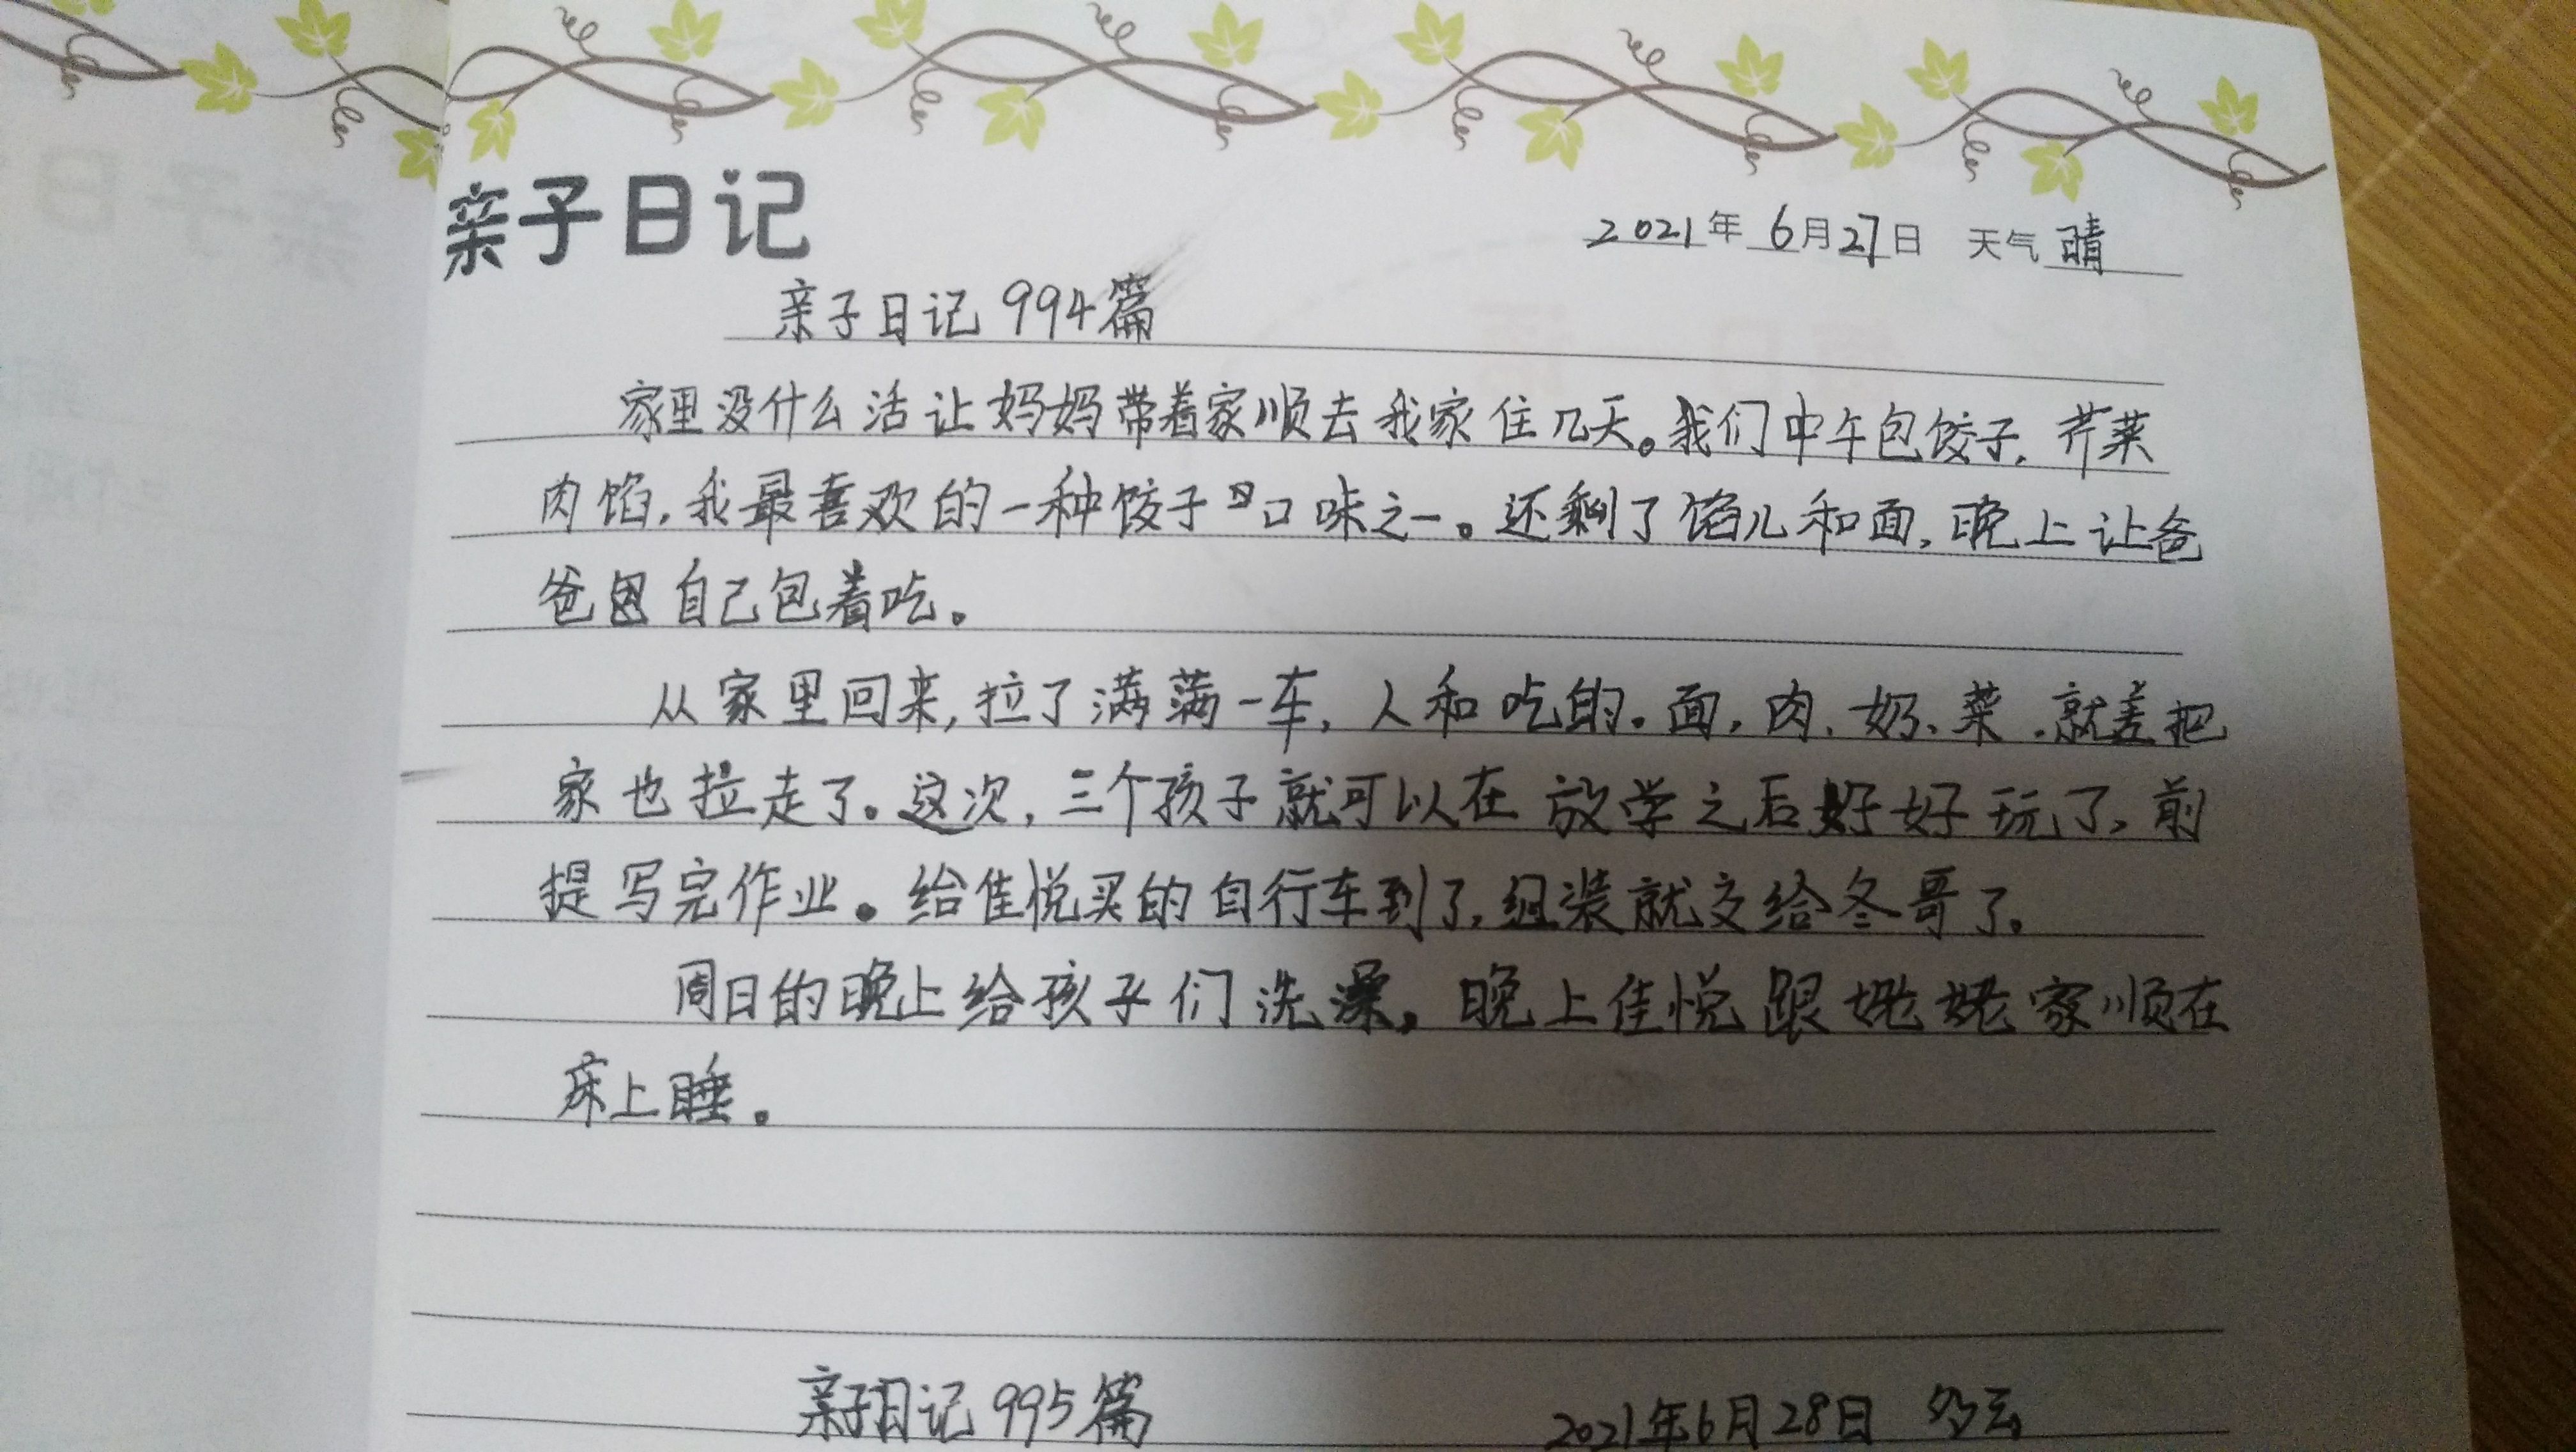 亲子日记
2021年 6月27日 天气 晴
亲子日记 994篇
家里没什么活让妈妈带着家顺去我家住几天。我们中午包饺子,芹菜
肉馅,我最喜欢的一种饺子口味之一。还剩了馅儿和面,晚上让爸
爸自己包着吃。
从家里回来,拉了满满一车,人和吃的。面,肉、奶、菜.就差把
家也拉走了。这次,三个孩子就可以在放学之后好好玩了,前
提写完作业。给佳悦买的自行车到了,组装就交给冬哥了。
周日的晚上给孩子们洗澡,晚上佳悦跟姥姥家顺在
床上睡。
亲子日记 995篇 2021年6月28日 多云